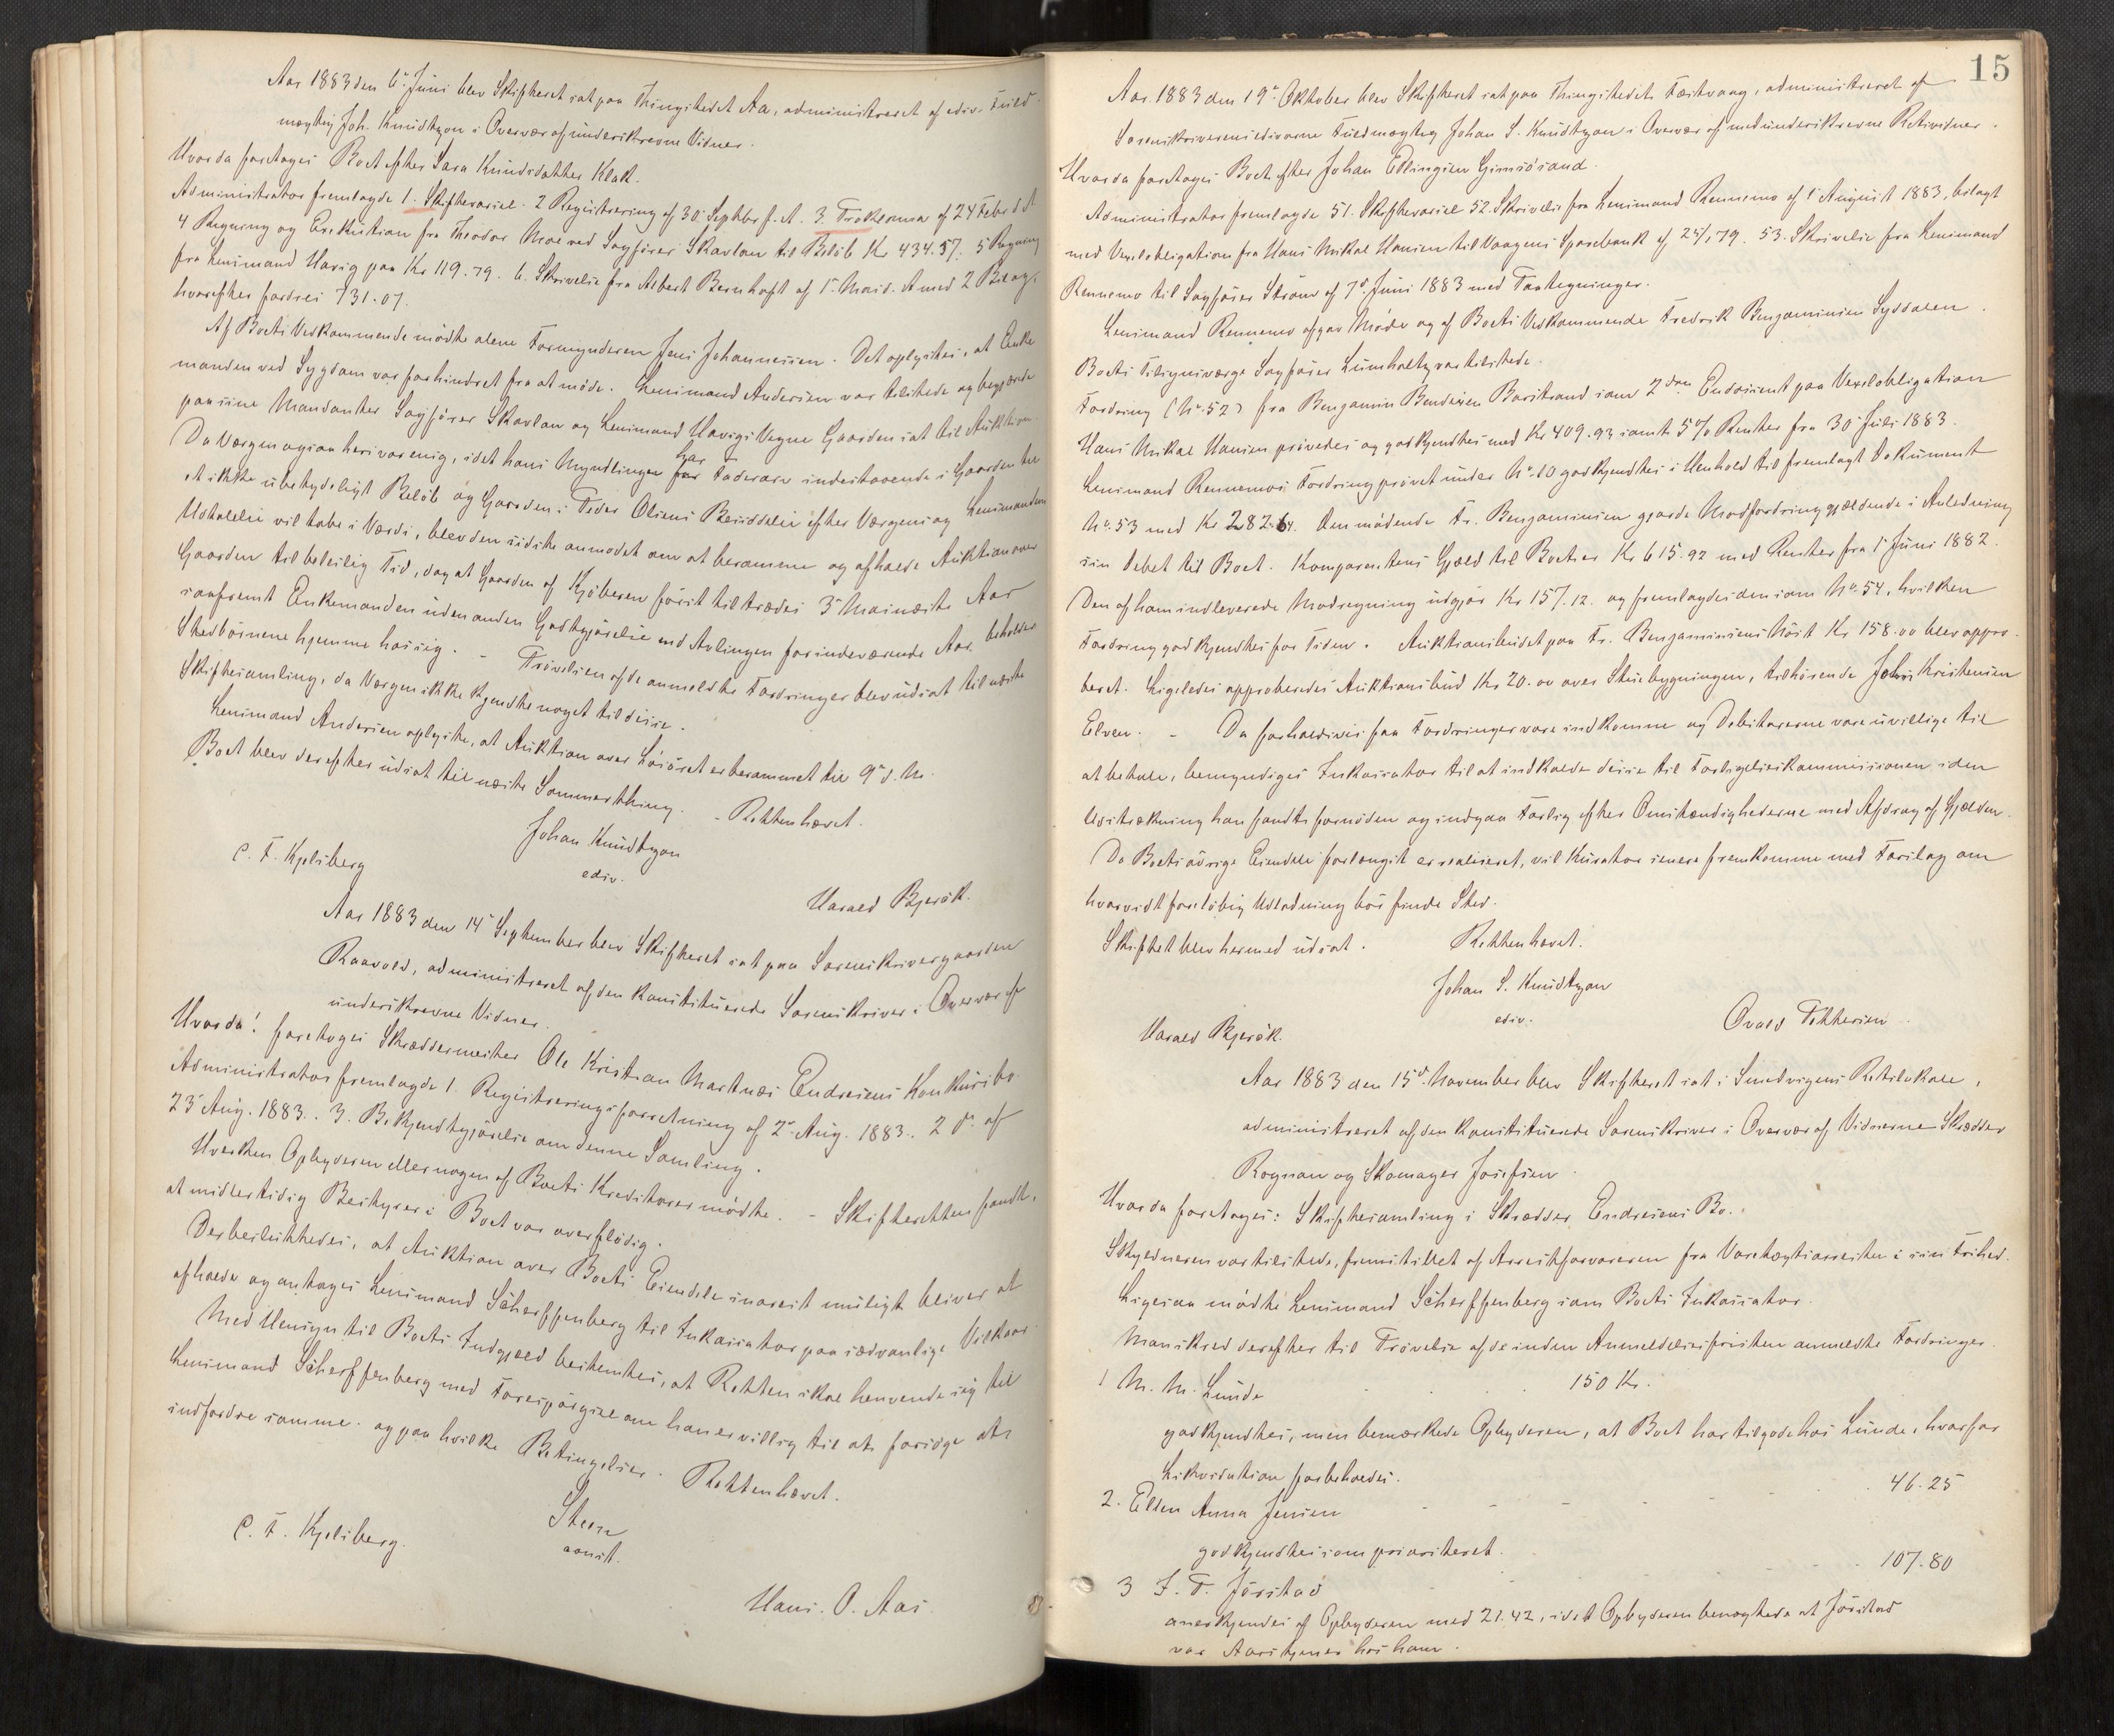 Aar 1883 den 6te Juni blev Skifteret sat paa Thingstedet Aa, administreret af edsv. Fuld-
mægtig Joh. Knudtzon i Overvær af underskrevne Vidner.
Hvorda foretoges Boet efter Sara Knudsdatter Klak.
Administrator fremlagde 1. Skiftevarsel. 2 Registrering af 30 Septbr f. A. 3. Proklama af 24 Febr d. A.
4 Regning og Exekution fra Theodor Moe ved Sagfører Skavlan til Beløb Kr 434.57. 5 Regning
fra Lensmand Havig paa Kr 119.79. 6. Skrivelse fra Albert Bernhoft af 1. Mai d. A med 2 Bilag,
hvorefter fordres 731.07.
Af Boets Vedkommende mødte alene Formynderen Jens Johannessen. Det oplystes, at Enke
manden ved Sygdom var forhindret fra at møde. Lensmand Andersen var tilstede og begjærede
paa sine Mandanter Sagfører Skavlan og Lensmand Havigs Vegne Gaarden sat til Auktion.
Da Værgen ogsaa heri var enig, idet hans Myndlinger har Fadersarv indestaaende i Gaarden til
et ikke ubetydeligt Beløb og Gaarden i Peder Olsens Besiddelse efter Værgens og Lensmandens
Udtalelse vil tabe i Værdi, blev den sidste anmodet om at beramme og afholde Auktion over
Gaarden til beleilig Tid, dog at Gaarden af Kjøberen først tiltrædes 3 Mai næste Aar
saafremt Enkemanden uden anden Godtgjørelse end Avlingen for indeværende Aar beholder
Stedbørnene hjemme hos sig. – Prøvelsen af de anmeldte Fordringer blev udsat til næste
Skiftesamling, da Værgen ikke kjendte noget til disse.
Lensmand Andersen oplyste, at Auktion over Løsøret er berammet til 9de d. M.
Boet blev derefter udsat til næste Sommerthing. – Retten hævet.
Johan Knudtzon
edsv.
C. F. Kjelsberg
Harald Bjerøk.
Aar 1883 den 14 September blev Skifteret sat paa Sorenskrivergaarden
Raavold, administreret af den konstituerede Sorenskriver i Overvær af
underskrevne Vidner.
Hvorda! foretoges Skræddermester Ole Kristian Martnæs Endresens Konkursbo.
Administrator fremlagde 1. Registreringsforretning af 2de Aug. 1883. 2 do af
23 Aug. 1883. 3. Bekjendtgjørelse om denne Samling.
Hverken Opbyderen eller nogen af Boets Kreditorer mødte. – Skifteretten fandt,
at midlertidig Bestyrer i Boet var overflødig.
Derbesluttedes, at Auktion over Boets Eiendele snarest muligt bliver at
afholde og antages Lensmand Scherffenberg til Inkassator paa sædvanlige Vilkaar.
Med Hensyn til Boets Indgjæld bestemtes, at Retten skal henvende sig til
Lensmand Scherffenberg med Forespørgsel om han er villig til at forsøge at
indfordre samme og paa hvilke Betingelser. Retten hævet.
Steen
const.
C. F. Kjelsberg.
Hans. O. Aas.
15
Aar 1883 den 19de Oktober blev Skifteret sat paa Thingstedet Festvaag, administreret af
Sorenskriverens edsvorne Fuldmægtig Johan S. Knudtzon i Overvær af medunderskrevne Retsvidner.
Hvorda foretoges Boet efter Johan Ellingsen Gimsøsand.
Administrator fremlagde 51. Skiftevarsel 52. Skrivelse fra Lensmand Rennemo af 1 August 1883, bilagt
med Vexelobligation fra Hans Mikal Hansen til Vaagens Sparebank af 25/1 79. 53. Skrivelse fra Lensmand
Rennemo til Sagfører Strøm af 7de Juni 1883 med Paategninger.
Lensmand Rennemo afgav Møde og af Boets Vedkommende Fredrik Benjaminsen Sydalen.
Boets Tilsynsværge Sagfører Lumholtz var tilstede.
Fordring (No. 52) fra Benjamin Bendixen Barstrand som 2den Endossent paa Vexelobligation
Hans Mikal Hansen prøvedes og godkjendtes med Kr 409.93 samt 5% Renter fra 30 Juli 1883.
Lensmand Rennemos Fordring prøvet under No. 10 godkjendtes i Henhold til fremlagt Dokument
No. 53 med Kr 282.64. Den mødende Fr. Benjaminsen gjorde Modfordring gjældende i Anledning
sin Debet til Boet. Komparentens Gjæld til Boet er Kr 615.92 med Renter fra 1 Juni 1882.
Den af ham indleverede Modregning udgjør Kr 157.12. og fremlagdes den som No. 54, hvilken
Fordring godkjendtes for Tiden. Auktionsbudet paa Fr. Benjaminsens Høst Kr 158.00 blev appro-
beret. Ligeledes approberedes Auktionsbud Kr 20.00 over Stuebygningen, tilhørende Johs Kristensen
Elven. – Da forholdsvis faa Fordringer vare indkomne og Debitorerne vare uvillige til
at betale, bemyndiges Inkassator til at indkalde disse til Forligelseskommissionen i den
Udstrækning han fandt fornøden og indgaa Forlig efter Omstændighederne med Afdrag af Gjælden.
Da Boets øvrige Eiendele forlængst er realiseret, vil Kurator senere fremkomme med Forslag om
hvorvidt foreløbig Udlodning bør finde Sted.
Skiftet blev hermed udsat. Retten hævet.
Johan S. Knudtzon
edsv.
Harald Bjerøk.
Ovald Pettersen
Aar 1883 den 15de November blev Skifteret sat i Smedvigens Retslokale,
administreret af den konstituerede Sorenskriver i Overvær af Vidnerne Skrædder
Rognan og Skomager Josefsen
Hvorda foretoges: Skiftesamling i Skrædder Endresens Bo.
Skyldneren var tilstede, fremstillet af Arrestforvareren fra Varetægtsarresten i sin Frihed.
Ligesaa mødte Lensmand Scherffenberg som Boets Inkassator.
Man skred derefter til Prøvelse af de inden Anmeldelsesfristen anmeldte Fordringer.
1 M. M. Lunde . . 150 Kr.
godkjendtes, men bemærkede Opbyderen, at Boet har tilgode hos Lunde, hvorfor
Likvidation forbeholdes.
2. Ellen Anna Jensen - - - - - 46.25
godkjendtes som prioriteret.
3 I. P. Jørstad - - - - - 107.80
anerkjendes af Opbyderen med 21.42, idet Opbyderen benægtede at Jørstad
var Aarstjener hos ham.